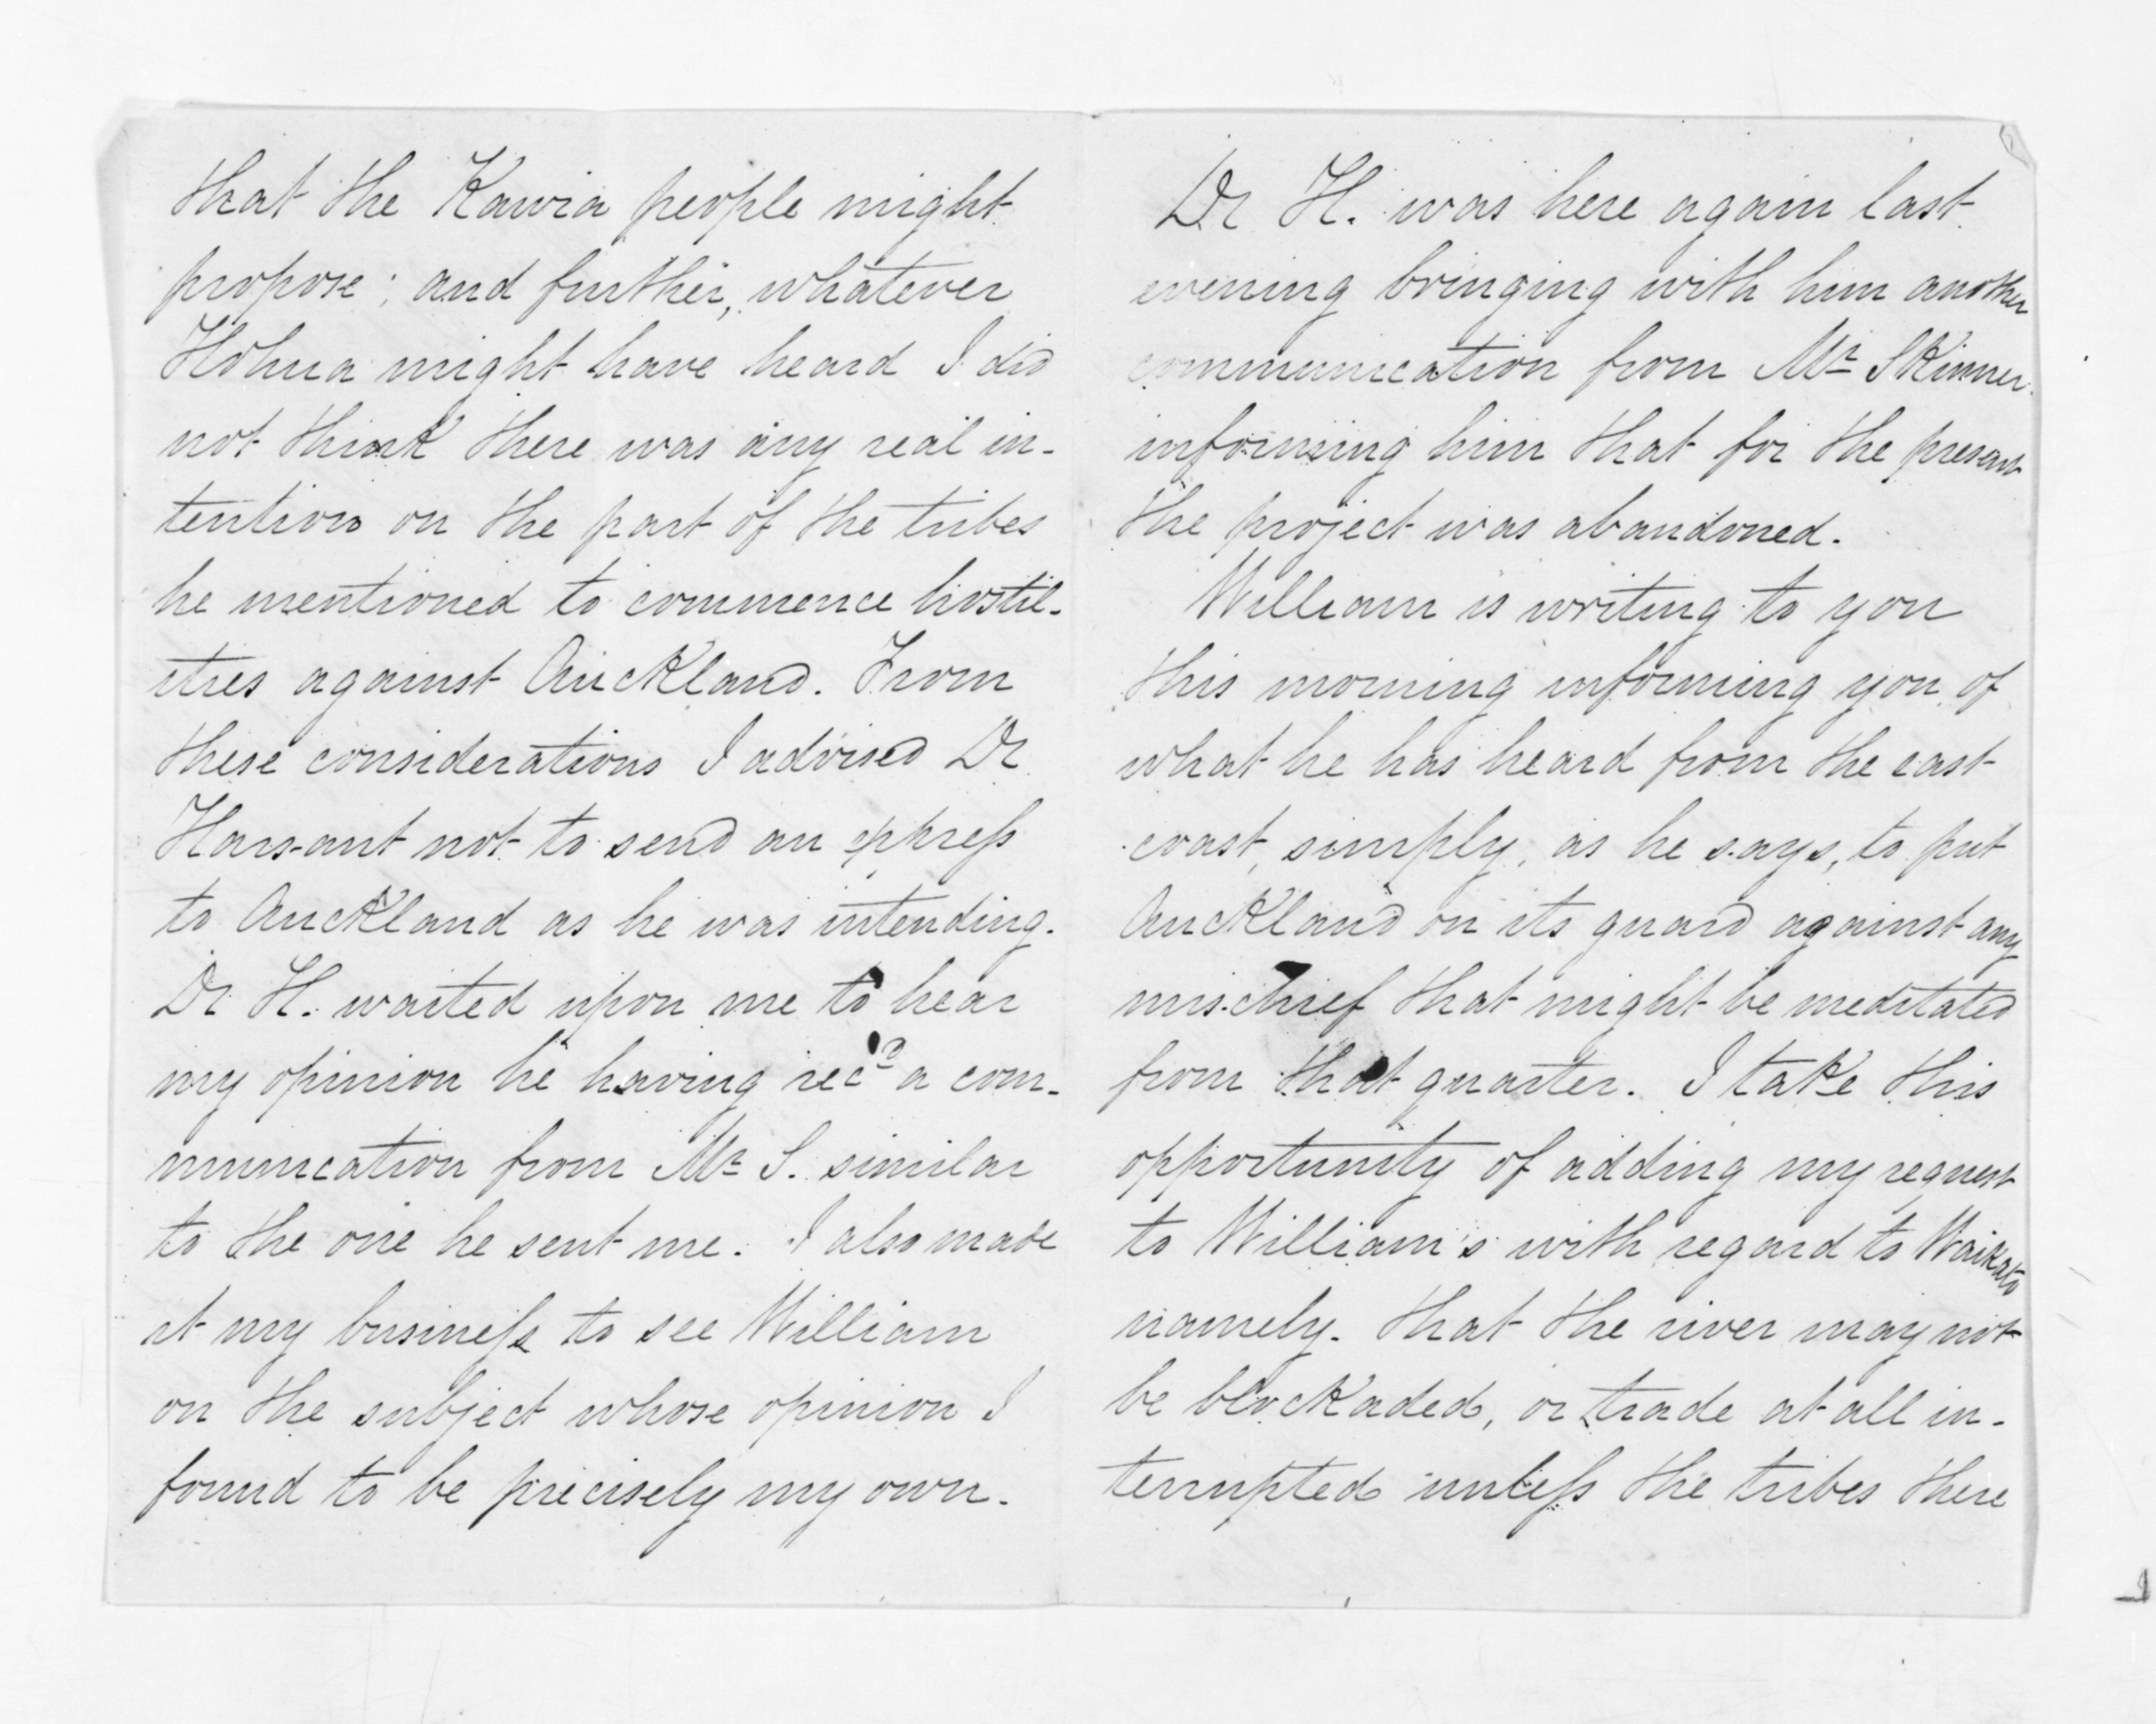 that the Kawia people might
propose; and further, whatever
Hohua might have heard I did
not think there was any real in-
tention on the part of the tribes
he mentioned to commence hostil-
ities against Auckland. From
these considerations I advised Dr
Harsant not to send an express
to Auckland as he was intending.
Dr H. waited upon me to hear
my opinion he having recd a com-
munication from Mr S. similar
to the one he sent me. I also made
it my business to see William
on the subject whose opinion I
found to be precisely my own.
Dr H. was here again last
evening bringing with him another
communication from Mr Skinner
informing him that for the present
the project was abandoned.
William is writing to you
this morning informing you of
what he has heard from the east
coast, simply, as he says, to put
Auckland on its guard against any
mischief that might be meditated
from that quarter. I take this
opportunity of adding my request
to William's with regard to Waikato
namely. that the river may not
be blockaded, or trade at all in-
terrupted unless the tribes there